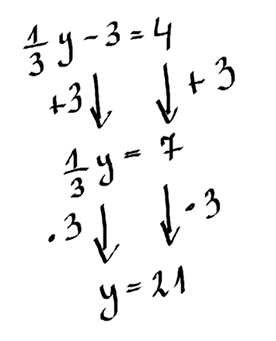 1/3 y - 3 = 4
+3 ↓ ↓ + 3
1/3 y = 7
· 3 ↓ ↓ · 3
y = 21